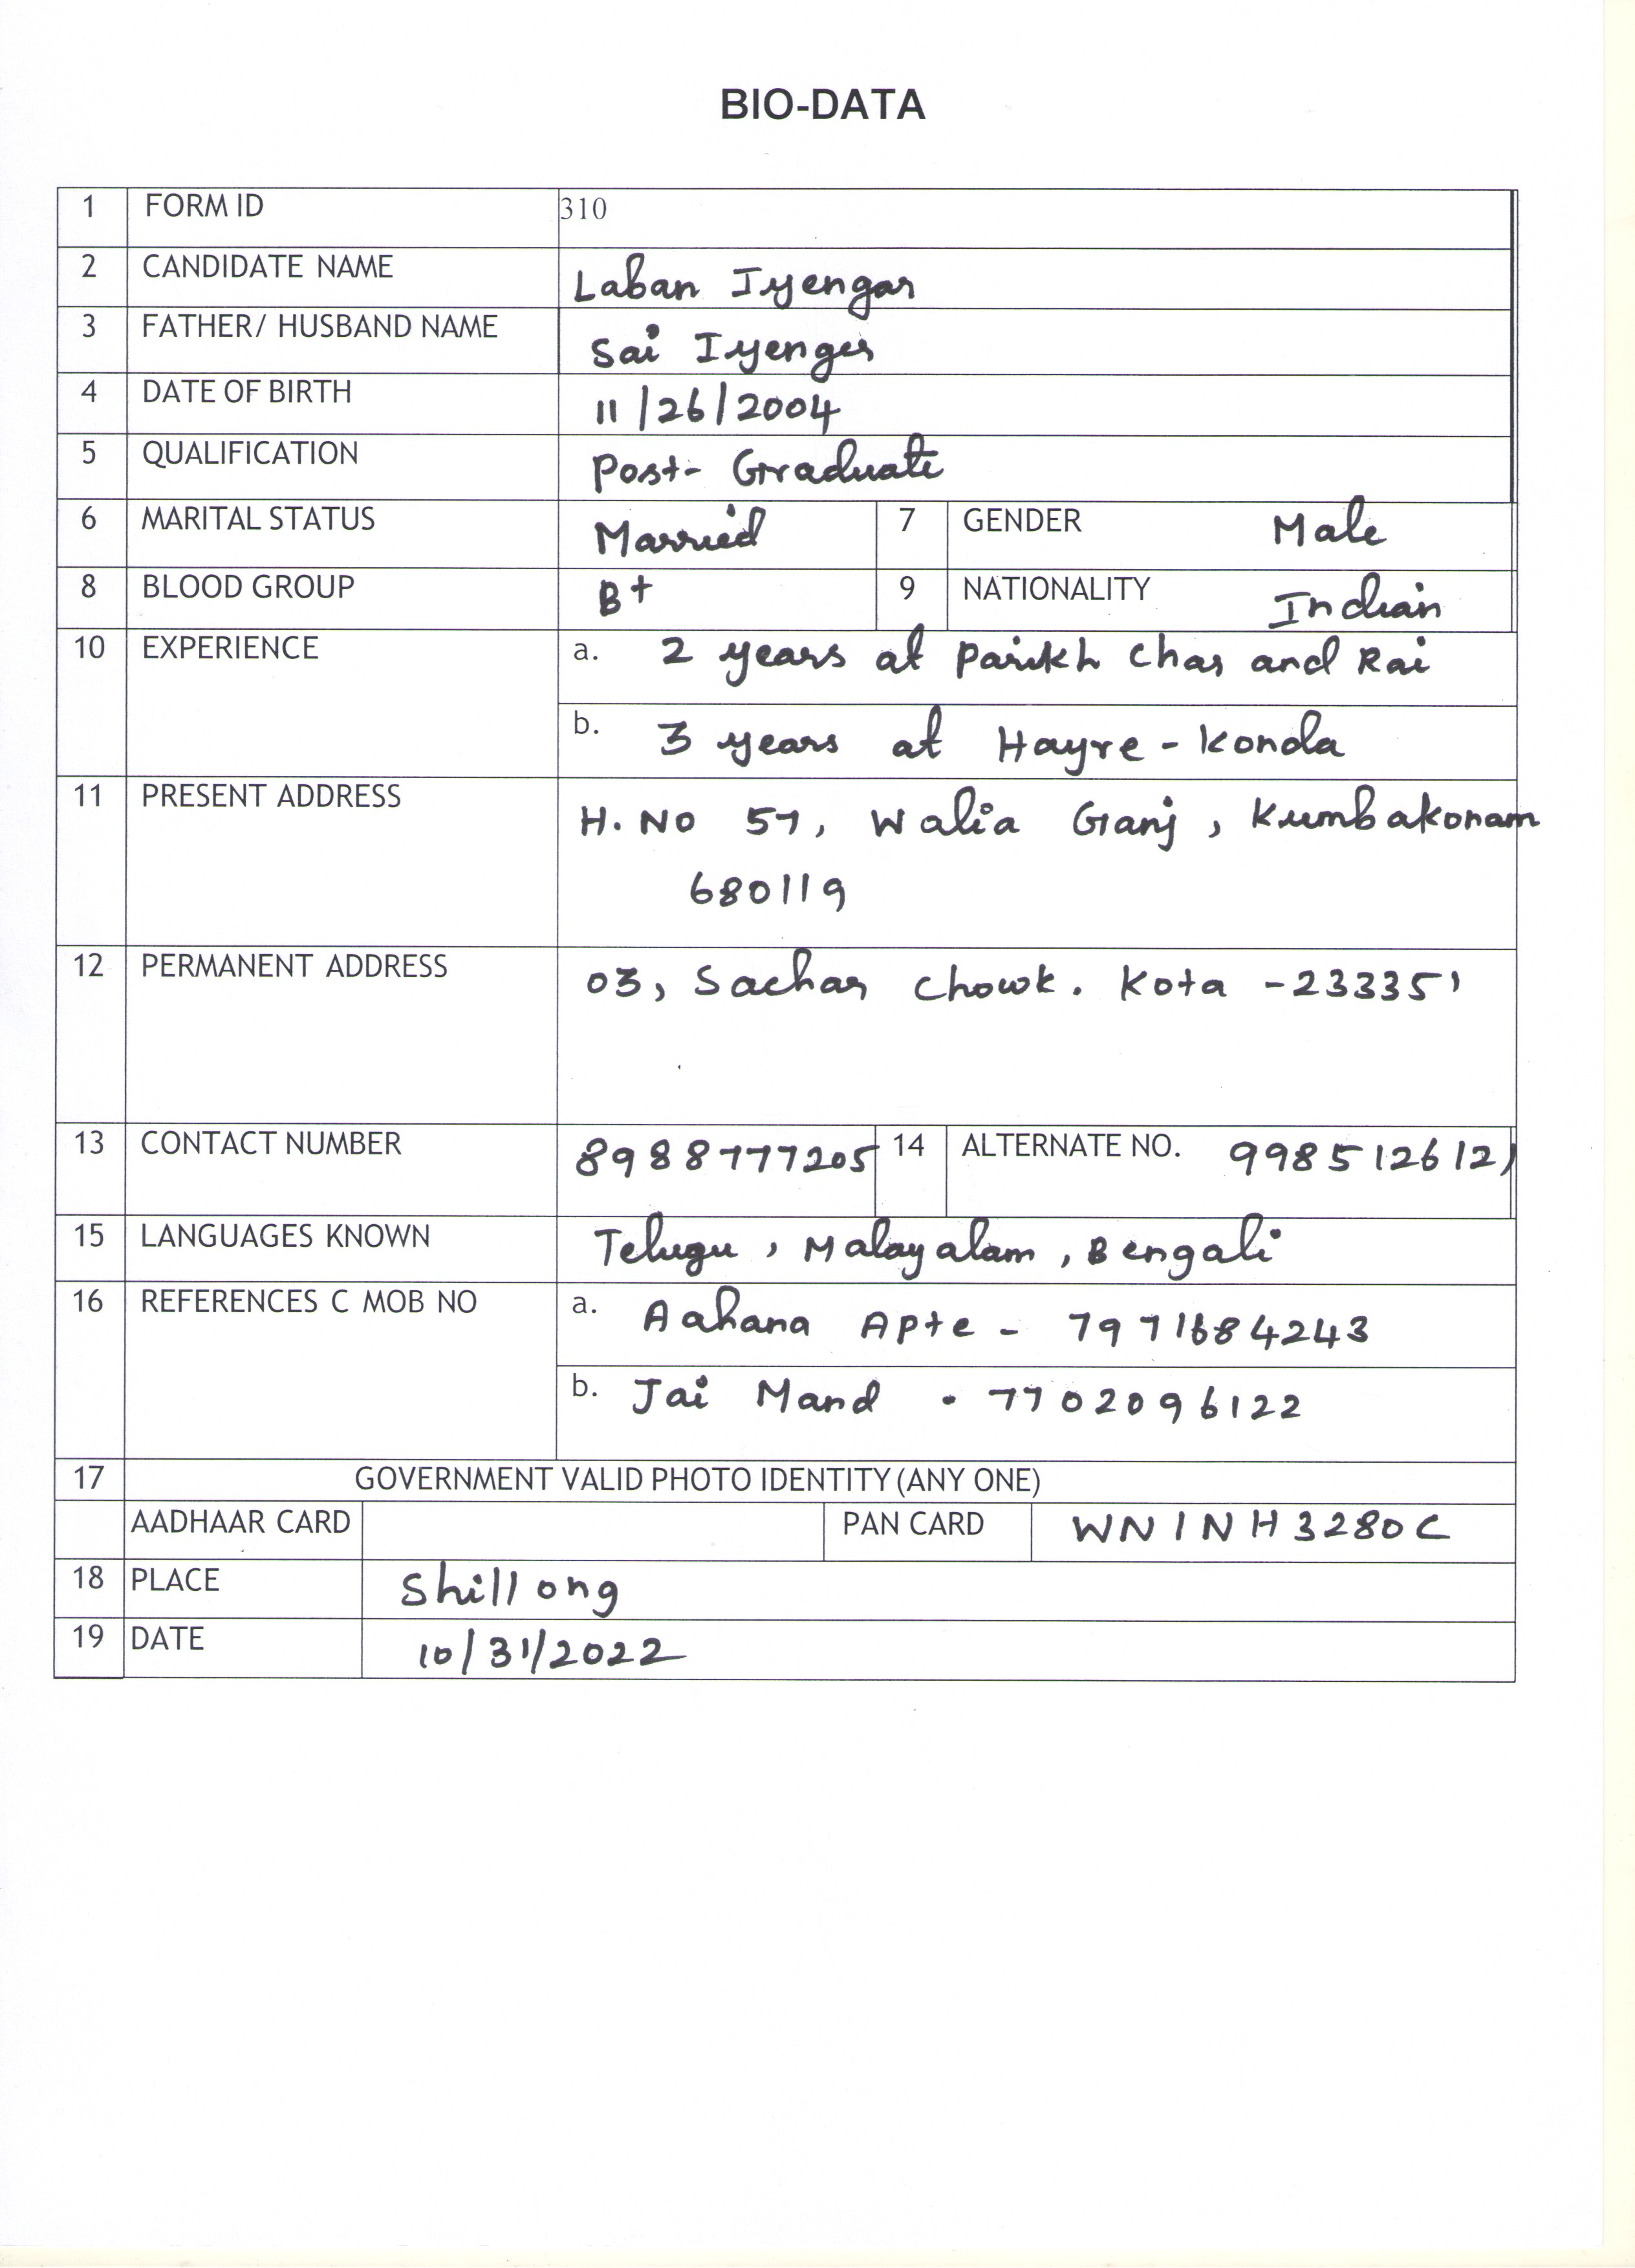 BIO-DATA
1 FORM ID 310
2 CANDIDATE NAME Laban Iyengar
3 FATHER/ HUSBAND NAME Sai Iyenger
4 DATE OF BIRTH 11/26/2004
5 QUALIFICATION Post-Graduate
6 MARITAL STATUS Married 7 GENDER Male
8 BLOOD GROUP B+ 9 NATIONALITY Indian
10 EXPERIENCE a. 2 years at Parikh Char and Rai
b. 3 years at Hayre-Konda
11 PRESENT ADDRESS H.NO 57, Walia Ganj, Kumbakonam
680119
12 PERMANENT ADDRESS 03, Sachar Chowk. Kota -233351
13 CONTACT NUMBER 8988777205 14 ALTERNATE NO. 9985126121
15 LANGUAGES KNOWN Telugu, Malayalam, Bengali
16 REFERENCES C MOB NO a. Aahana Apte - 7971684243
b. Jai Mand . 7702096122
17 GOVERNMENT VALID PHOTO IDENTITY (ANY ONE)
AADHAAR CARD PAN CARD WNINH3280C
18 PLACE Shillong
19 DATE 10/31/2022